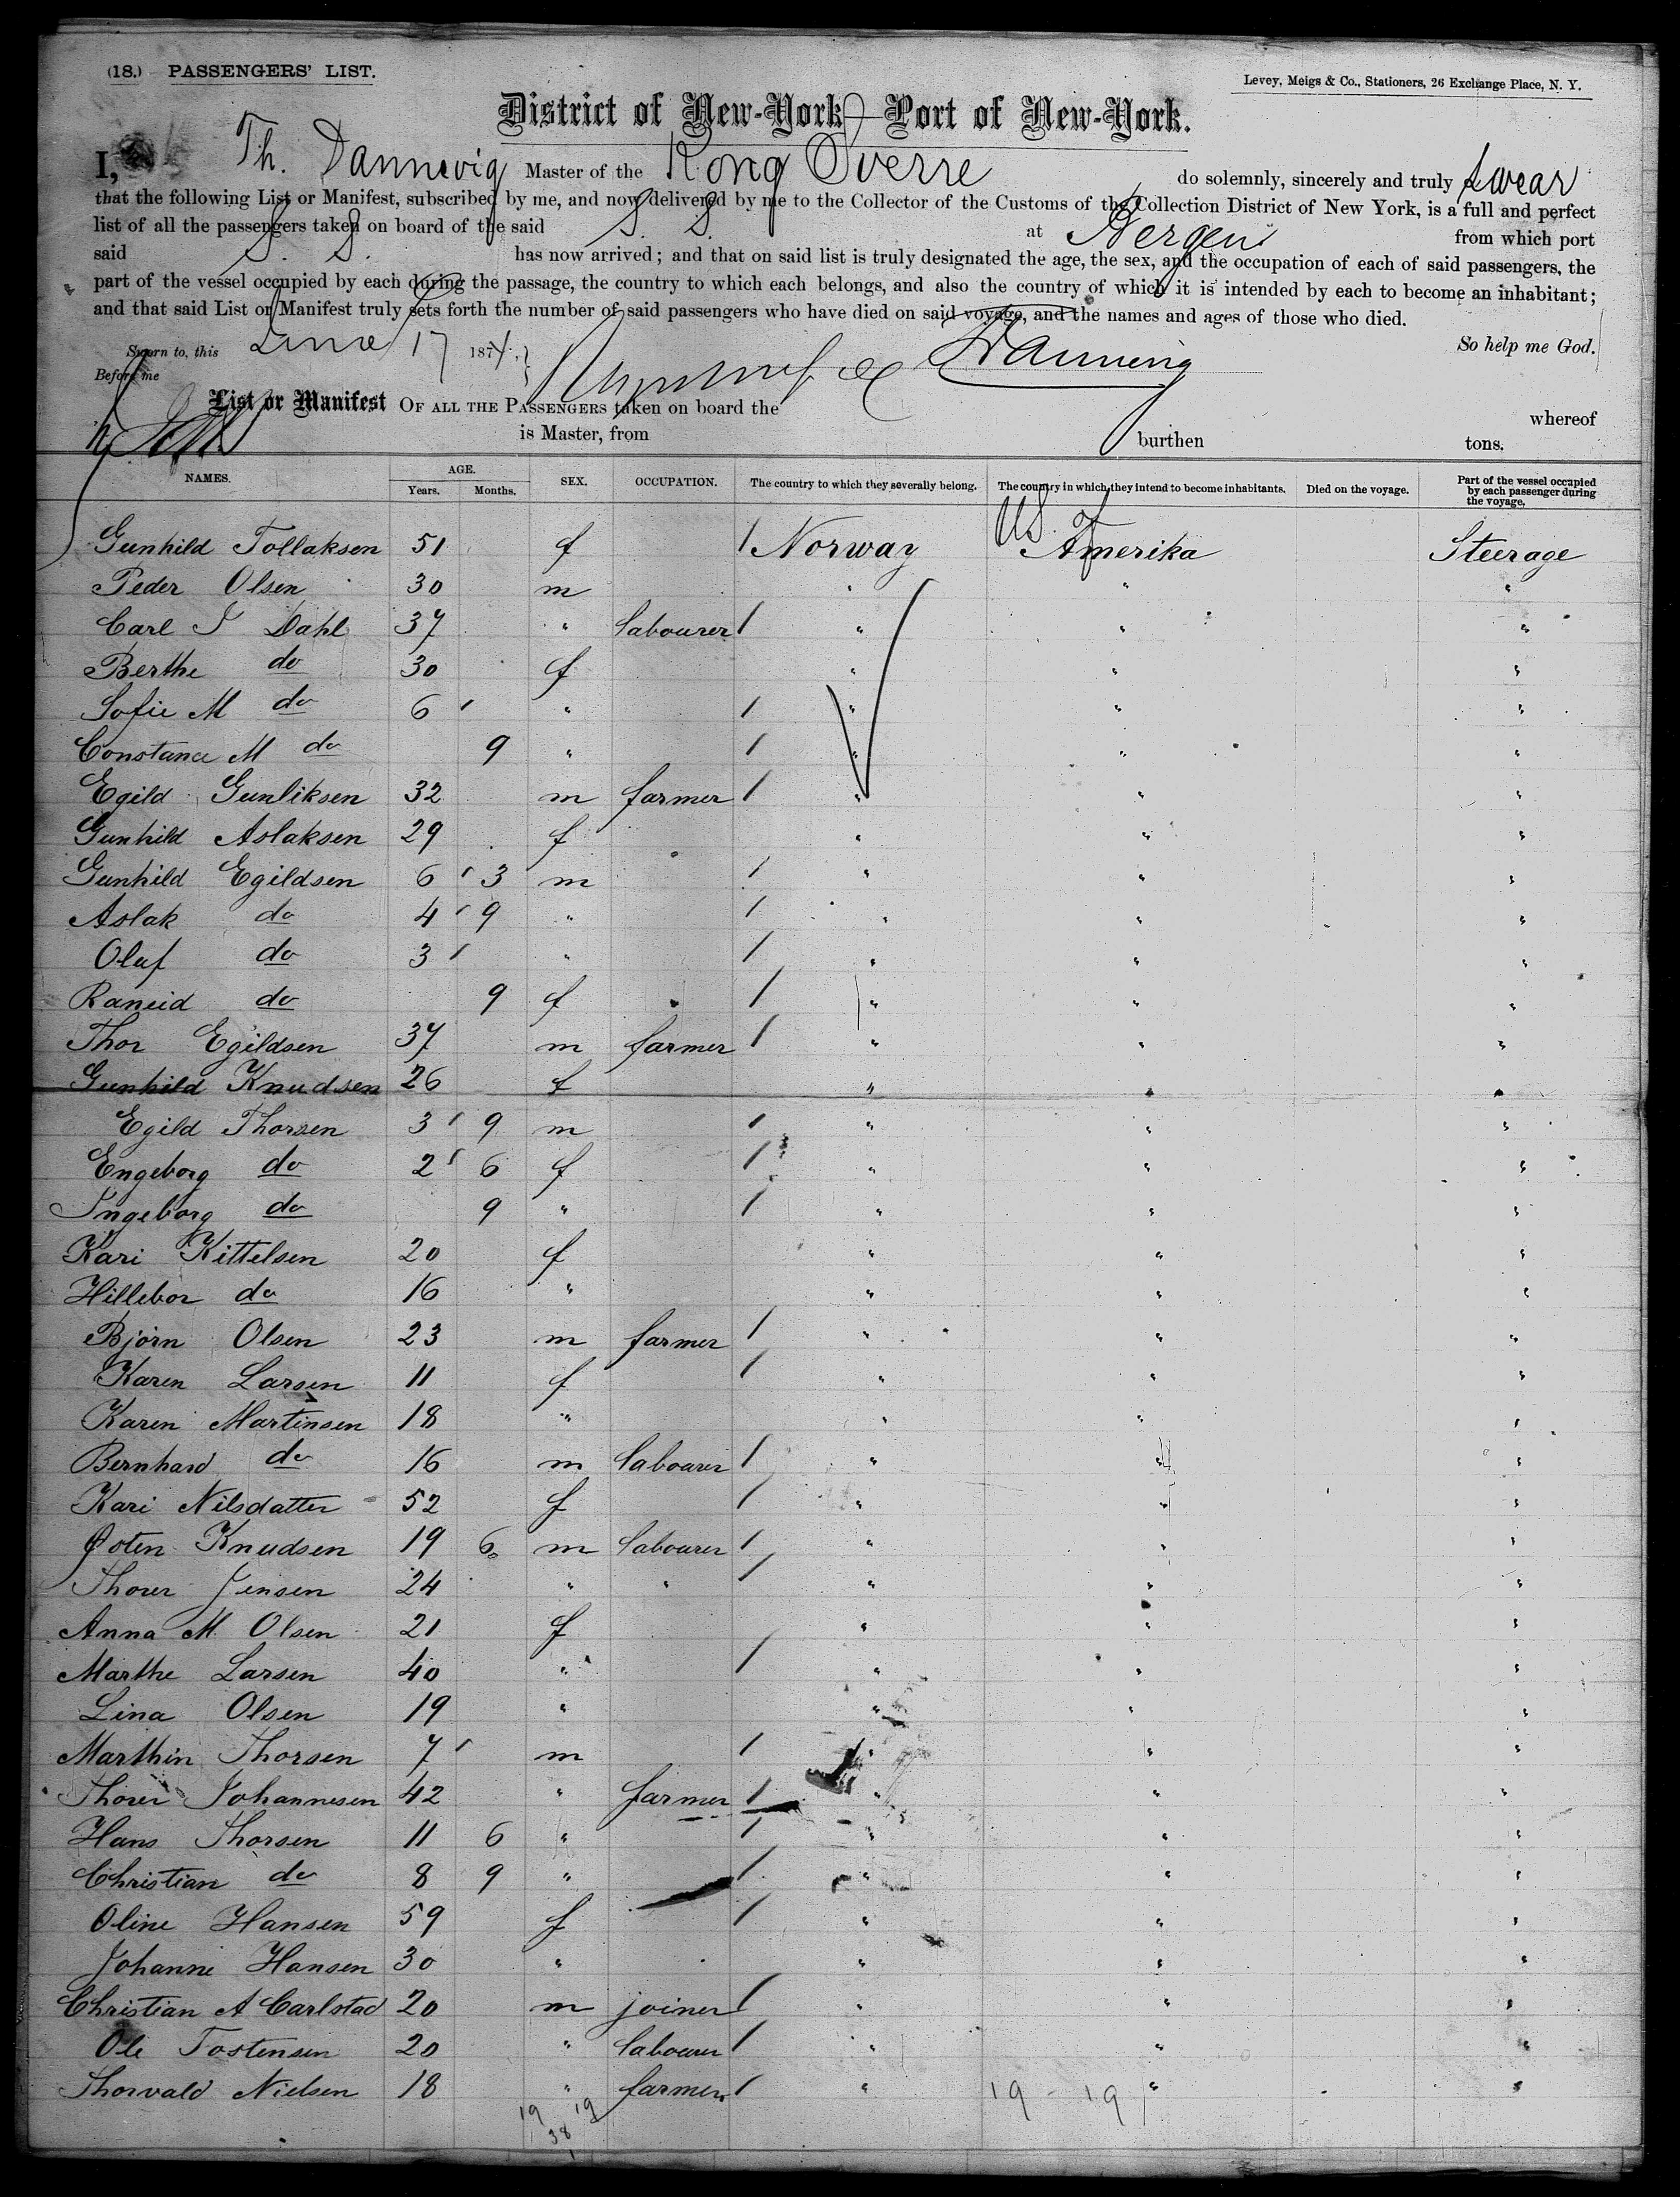 (18.) PASSENGERS' LIST.
Levey, Meigs & Co., Stationers, 26 Exchange Place, N. Y.
District of New-York—Port of New-York.
I, Th. Dannevig Master of the Kong Sverre do solemnly, sincerely and truly swear
that the following List or Manifest, subscribed by me, and now delivered by me to the Collector of the Customs of the Collection District of New York, is a full and perfect
list of all the passengers taken on board of the said S. S. at Bergen from which port
said S. S. has now arrived; and that on said list is truly designated the age, the sex, and the occupation of each of said passengers, the
part of the vessel occupied by each during the passage, the country to which each belongs, and also the country of which it is intended by each to become an inhabitant;
and that said List or Manifest truly sets forth the number of said passengers who have died on said voyage, and the names and ages of those who died.
Sworn to, this June 17 1874 So help me God.
Before me Dannevig
List or Manifest OF ALL THE PASSENGERS taken on board the whereof
is Master, from burthen tons.
NAMES. AGE. Years. Months. SEX. OCCUPATION. The country to which they severally belong. The country in which they intend to become inhabitants. Died on the voyage. Part of the vessel occupied by each passenger during the voyage.
Gunhild Tollaksen 51 f 1 Norway US of Amerika Steerage
Peder Olsen 30 m " " "
Carl J Dahl 37 " labourer 1 " " "
Berthe do 30 f " " "
Sofie M do 6 " 1 " " "
Constance M do 9 " 1 " " "
Egild Gunliksen 32 m farmer 1 " " "
Gunhild Aslaksen 29 f " " "
Gunhild Egildsen 6 3 m 1 " " "
Aslak do 4 9 " 1 " " "
Oluf do 3 " 1 " " "
Raneid do 9 f 1 " " "
Thor Egildsen 37 m farmer 1 " " "
Gunhild Knudsen 26 f " " "
Egild Thorsen 3 9 m 1 " " "
Engeborg do 2 6 f 1 " " "
Ingeborg do 9 " 1 " " "
Kari Kittelsen 20 f " " "
Hillebor do 16 " " " "
Bjørn Olsen 23 m farmer 1 " " "
Karen Larsen 11 f 1 " " "
Karen Martinsen 18 " " " "
Bernhard do 16 m labourer 1 " " "
Kari Nilsdatter 52 f 1 " " "
Østen Knudsen 19 6 m labourer 1 " " "
Thorer Jensen 24 " " 1 " " "
Anna M. Olsen 21 f " " "
Marthe Larsen 40 " 1 " " "
Lina Olsen 19 " " " "
Marthin Thorsen 7 m 1 " " "
Thorer Johannesen 42 " farmer 1 " " "
Hans Thorsen 11 6 " 1 " " "
Christian do 8 9 " 1 " " "
Oline Hansen 59 f 1 " " "
Johanne Hansen 30 " " " "
Christian A Carlstad 20 m joiner 1 " " "
Ole Tostensen 20 " labourer 1 " " "
Thorvald Nielsen 18 " farmer 1 " 19 - 19 " "
19 19
38